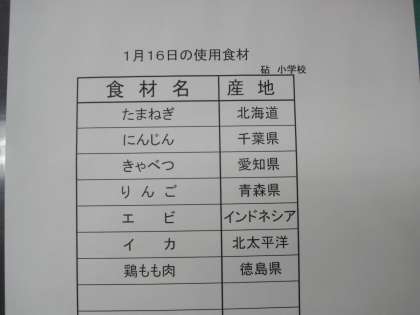 1月16日の使用食材
砧 小学校
食材名 産地
たまねぎ 北海道
にんじん 千葉県
きゃべつ 愛知県
りんご 青森県
エビ インドネシア
イカ 北太平洋
鶏もも肉 徳島県